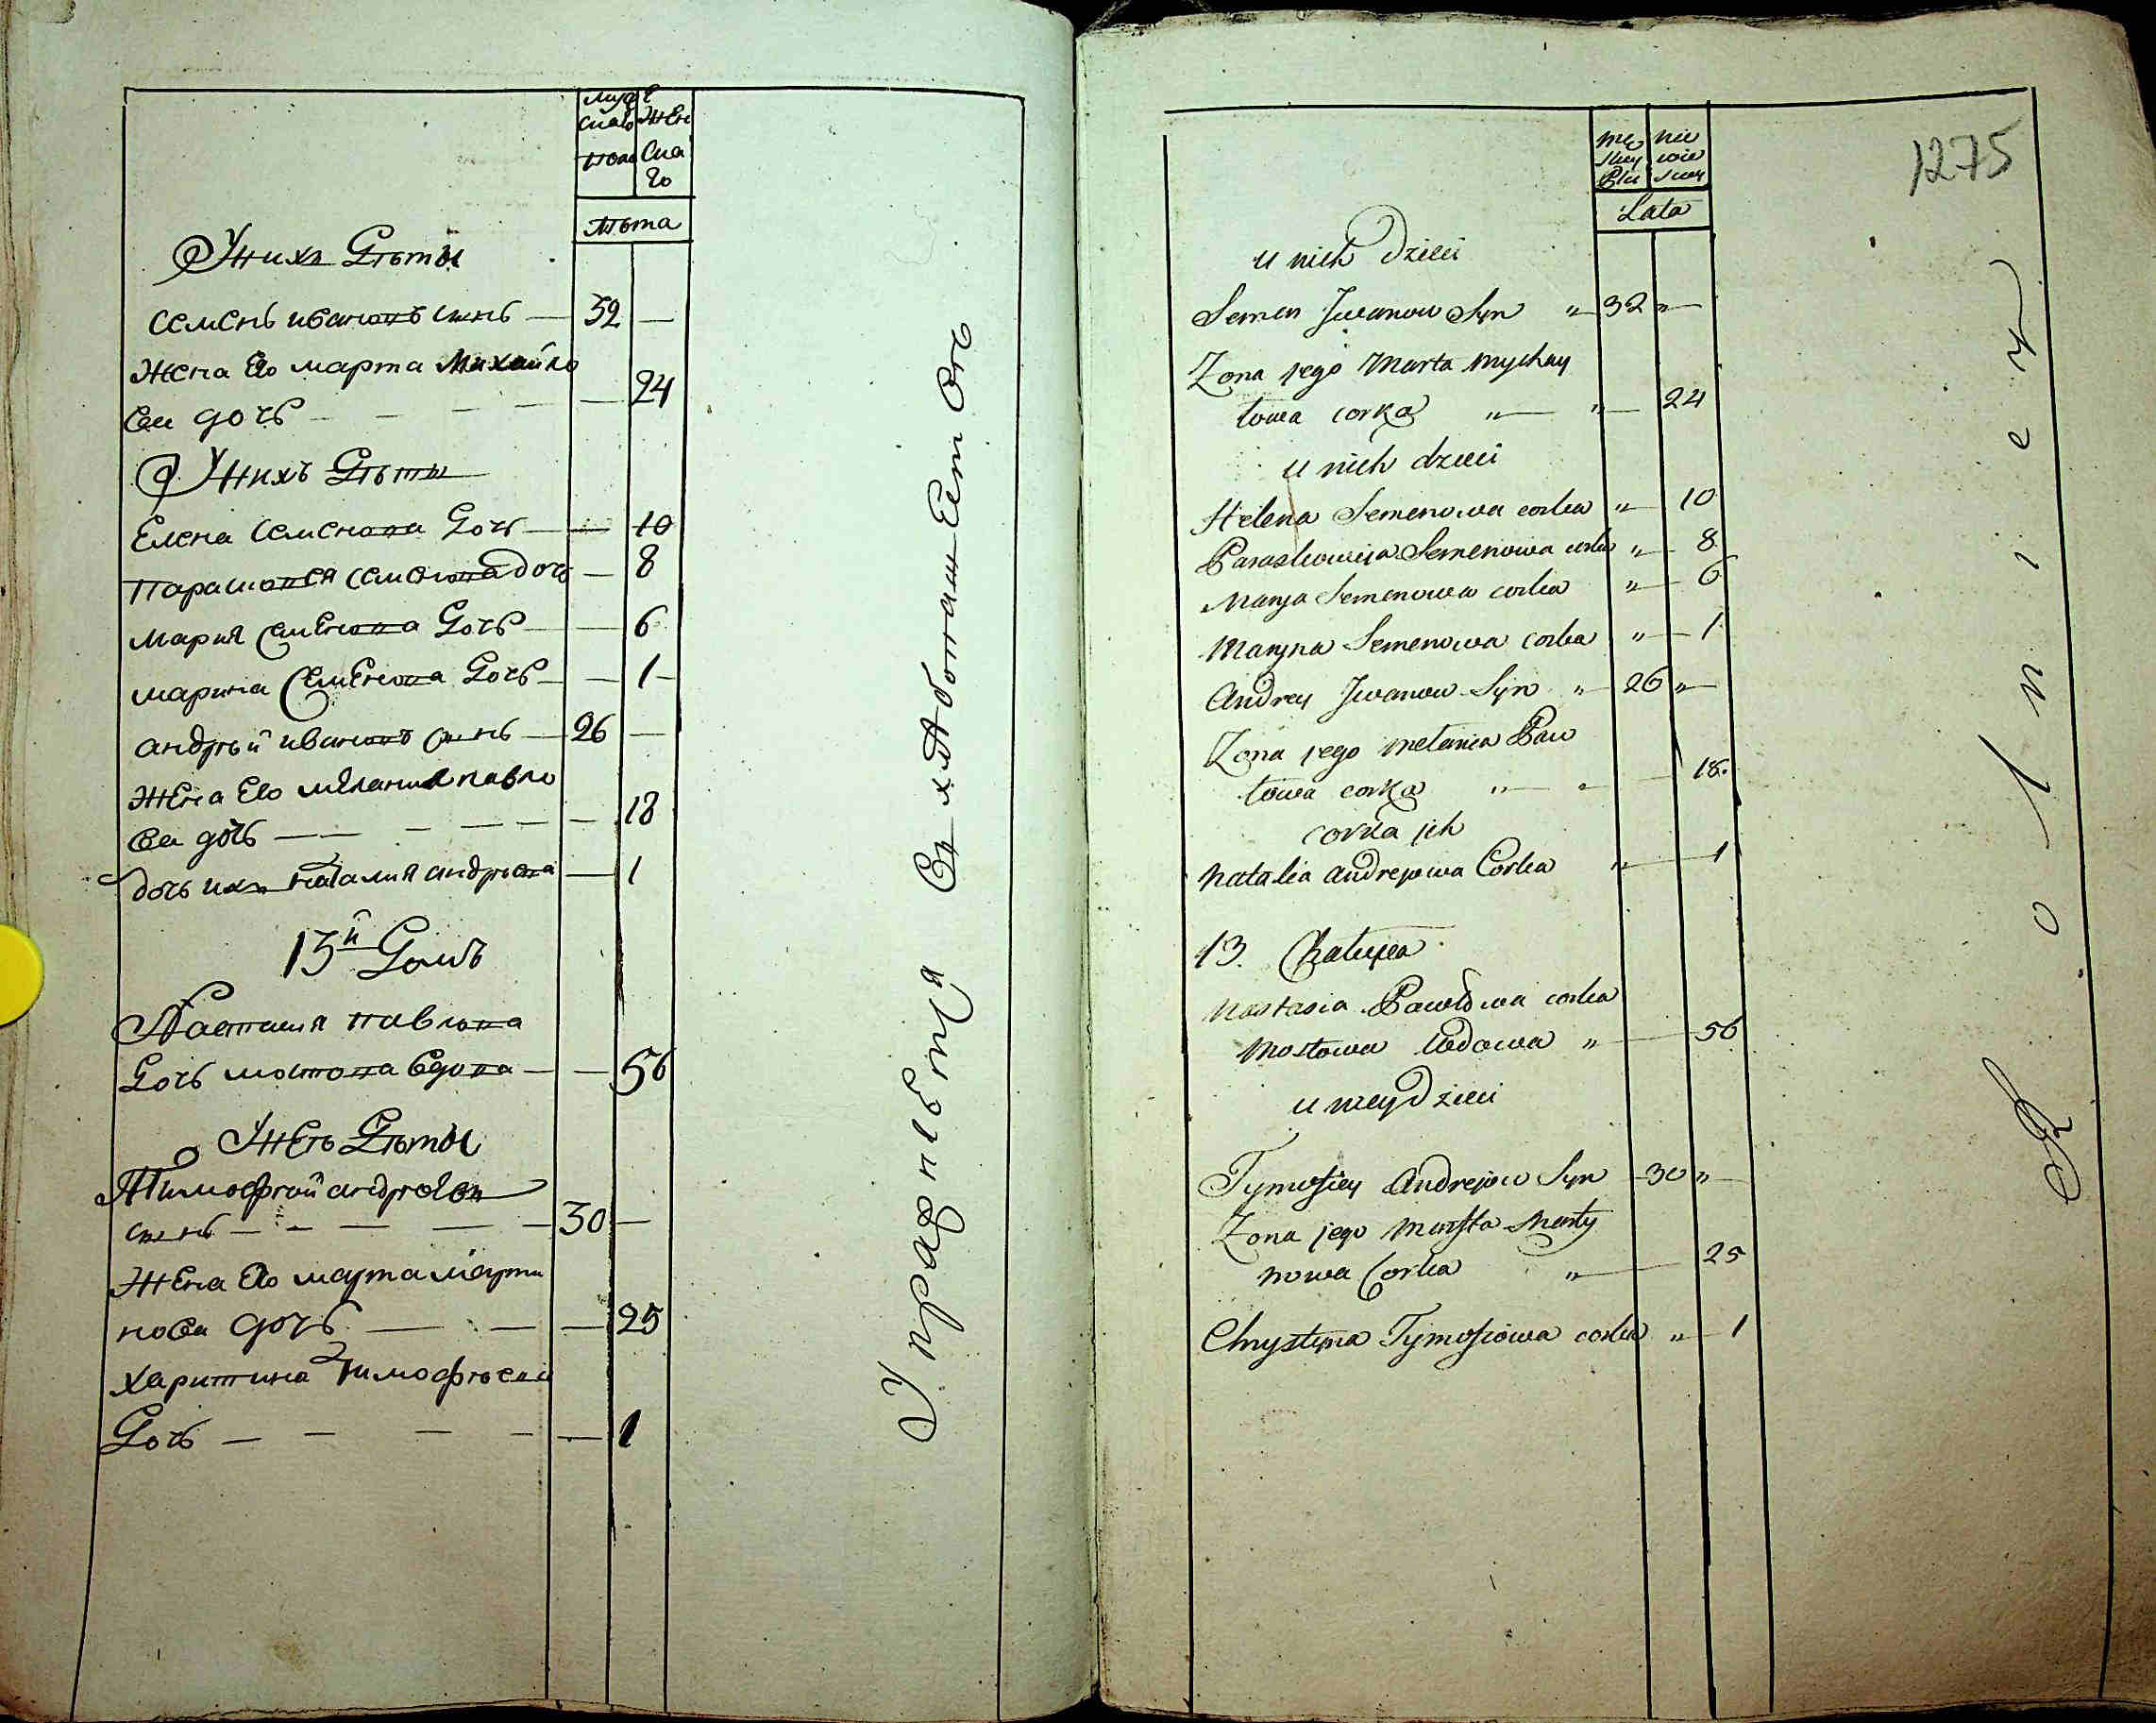 Лета
У нихъ Дѣты
Семенъ Ивановъ сынъ — 32 —
Жена Его Марта Михайло
ва дочь — — — — — 24
У нихъ Дѣты
Елена Семенова Дочь — — 10
Парасковея Семенова дочь — 8
Мария Семенова Дочь — — 6
Марина Семенова Дочь — — 1 —
Андрѣй Ивановъ сынъ — 26 —
Жена Его Мелания Павло
ва дочь — — — — — 18
дочь ихъ Наталия Андрѣева — 1
13й Домъ
Настасия Павлова
Дочь Мостова вдова — — 56
У Неѣ Дѣты
Тимофѣй Андрѣевъ
сынъ — — — — — 30 —
Жена Его Марта Марти
нова дочь — — — 25
Харитина Тимофѣева
Дочь — — — — — 1
Упражняется въ хлѣбопаш
1275
Lata
u nich Dzieci
Semen Jwanow Syn „ — 32 „ —
Zona jego Marta Mychay
łowa corka „ — „ — 24
u nich dzieci
Helena Semenowa corka „ — 10
Paraskowiia Semenowa corka „ — 8
Marya Semenowa corka „ — 6
Maryna Semenowa corka „ — 1
Andrey Jwanow Syn „ — 26 „ —
Zona jego Melania Paw
łowa corka „ — „ — 18.
corka ich
Natalia Andrejowa Corka „ — 1
13. Chałupa
Nastasia Pawłowa corka
Mostowa Wdowa „ — 56
u niey Dzieci
Tymofiey Andrejow Syn — 30 „ —
Zona jego Marfta Marty
nowa Corka „ — 25
Chrystyna Tymofiowa corka „ — 1
Rolniey